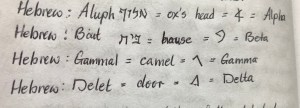 Hebrew: Aluph אלוף = ox's head = = Alpha
Hebrew: Bäit בית = hause = = Beta
Hebrew: Gammal = camel = ㄱ = Gamma
Hebrew: Delet = door = Δ = Delta